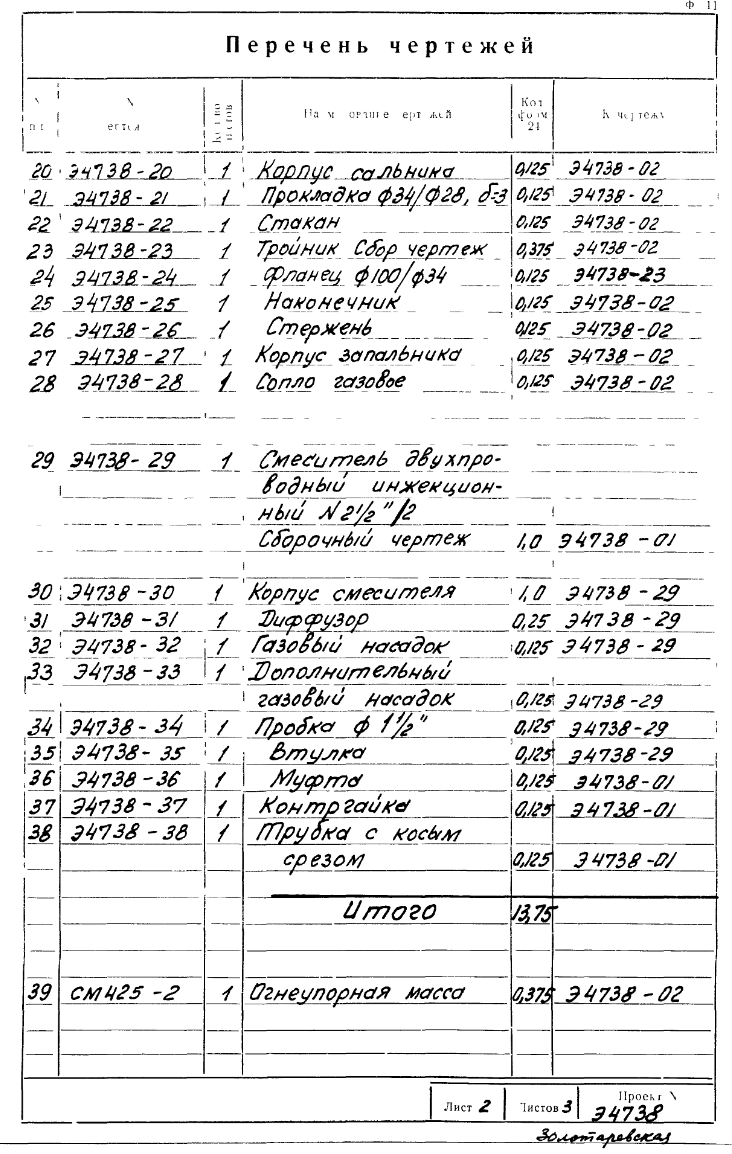 Ф 11
Перечень чертежей
20 Э4738-20 1 Корпус сальника 0,125 Э4738-02
21 Э4738-21 1 Прокладка ф34/ф28, δ-3 0,125 Э4738-02
22 Э4738-22 1 Стакан 0,125 Э4738-02
23 Э4738-23 1 Тройник Сбор чертеж 0,375 Э4738-02
24 Э4738-24 1 Фланец ф100/ф34 0,125 Э4738-23
25 Э4738-25 1 Наконечник 0,125 Э4738-02
26 Э4738-26 1 Стержень 0,125 Э4738-02
27 Э4738-27 1 Корпус запальника 0,125 Э4738-02
28 Э4738-28 1 Сопло газовое 0,125 Э4738-02
29 Э4738-29 1 Смеситель двухпро-
водный инжекцион-
ный N 2 1/2"/2
Сборочный чертеж 1,0 Э4738-01
30 Э4738-30 1 Корпус смесителя 1,0 Э4738-29
31 Э4738-31 1 Диффузор 0,25 Э4738-29
32 Э4738-32 1 Газовый насадок 0,125 Э4738-29
33 Э4738-33 1 Дополнительный
газовый насадок 0,125 Э4738-29
34 Э4738-34 1 Пробка ф 1 1/2" 0,125 Э4738-29
35 Э4738-35 1 Втулка 0,125 Э4738-29
36 Э4738-36 1 Муфта 0,125 Э4738-01
37 Э4738-37 1 Контргайка 0,125 Э4738-01
38 Э4738-38 1 Трубка с косым
срезом 0,125 Э4738-01
Итого 13,75
39 СМ425-2 1 Огнеупорная масса 0,375 Э4738-02
Лист 2 Листов 3 Проект N
Э4738
Золотаревская